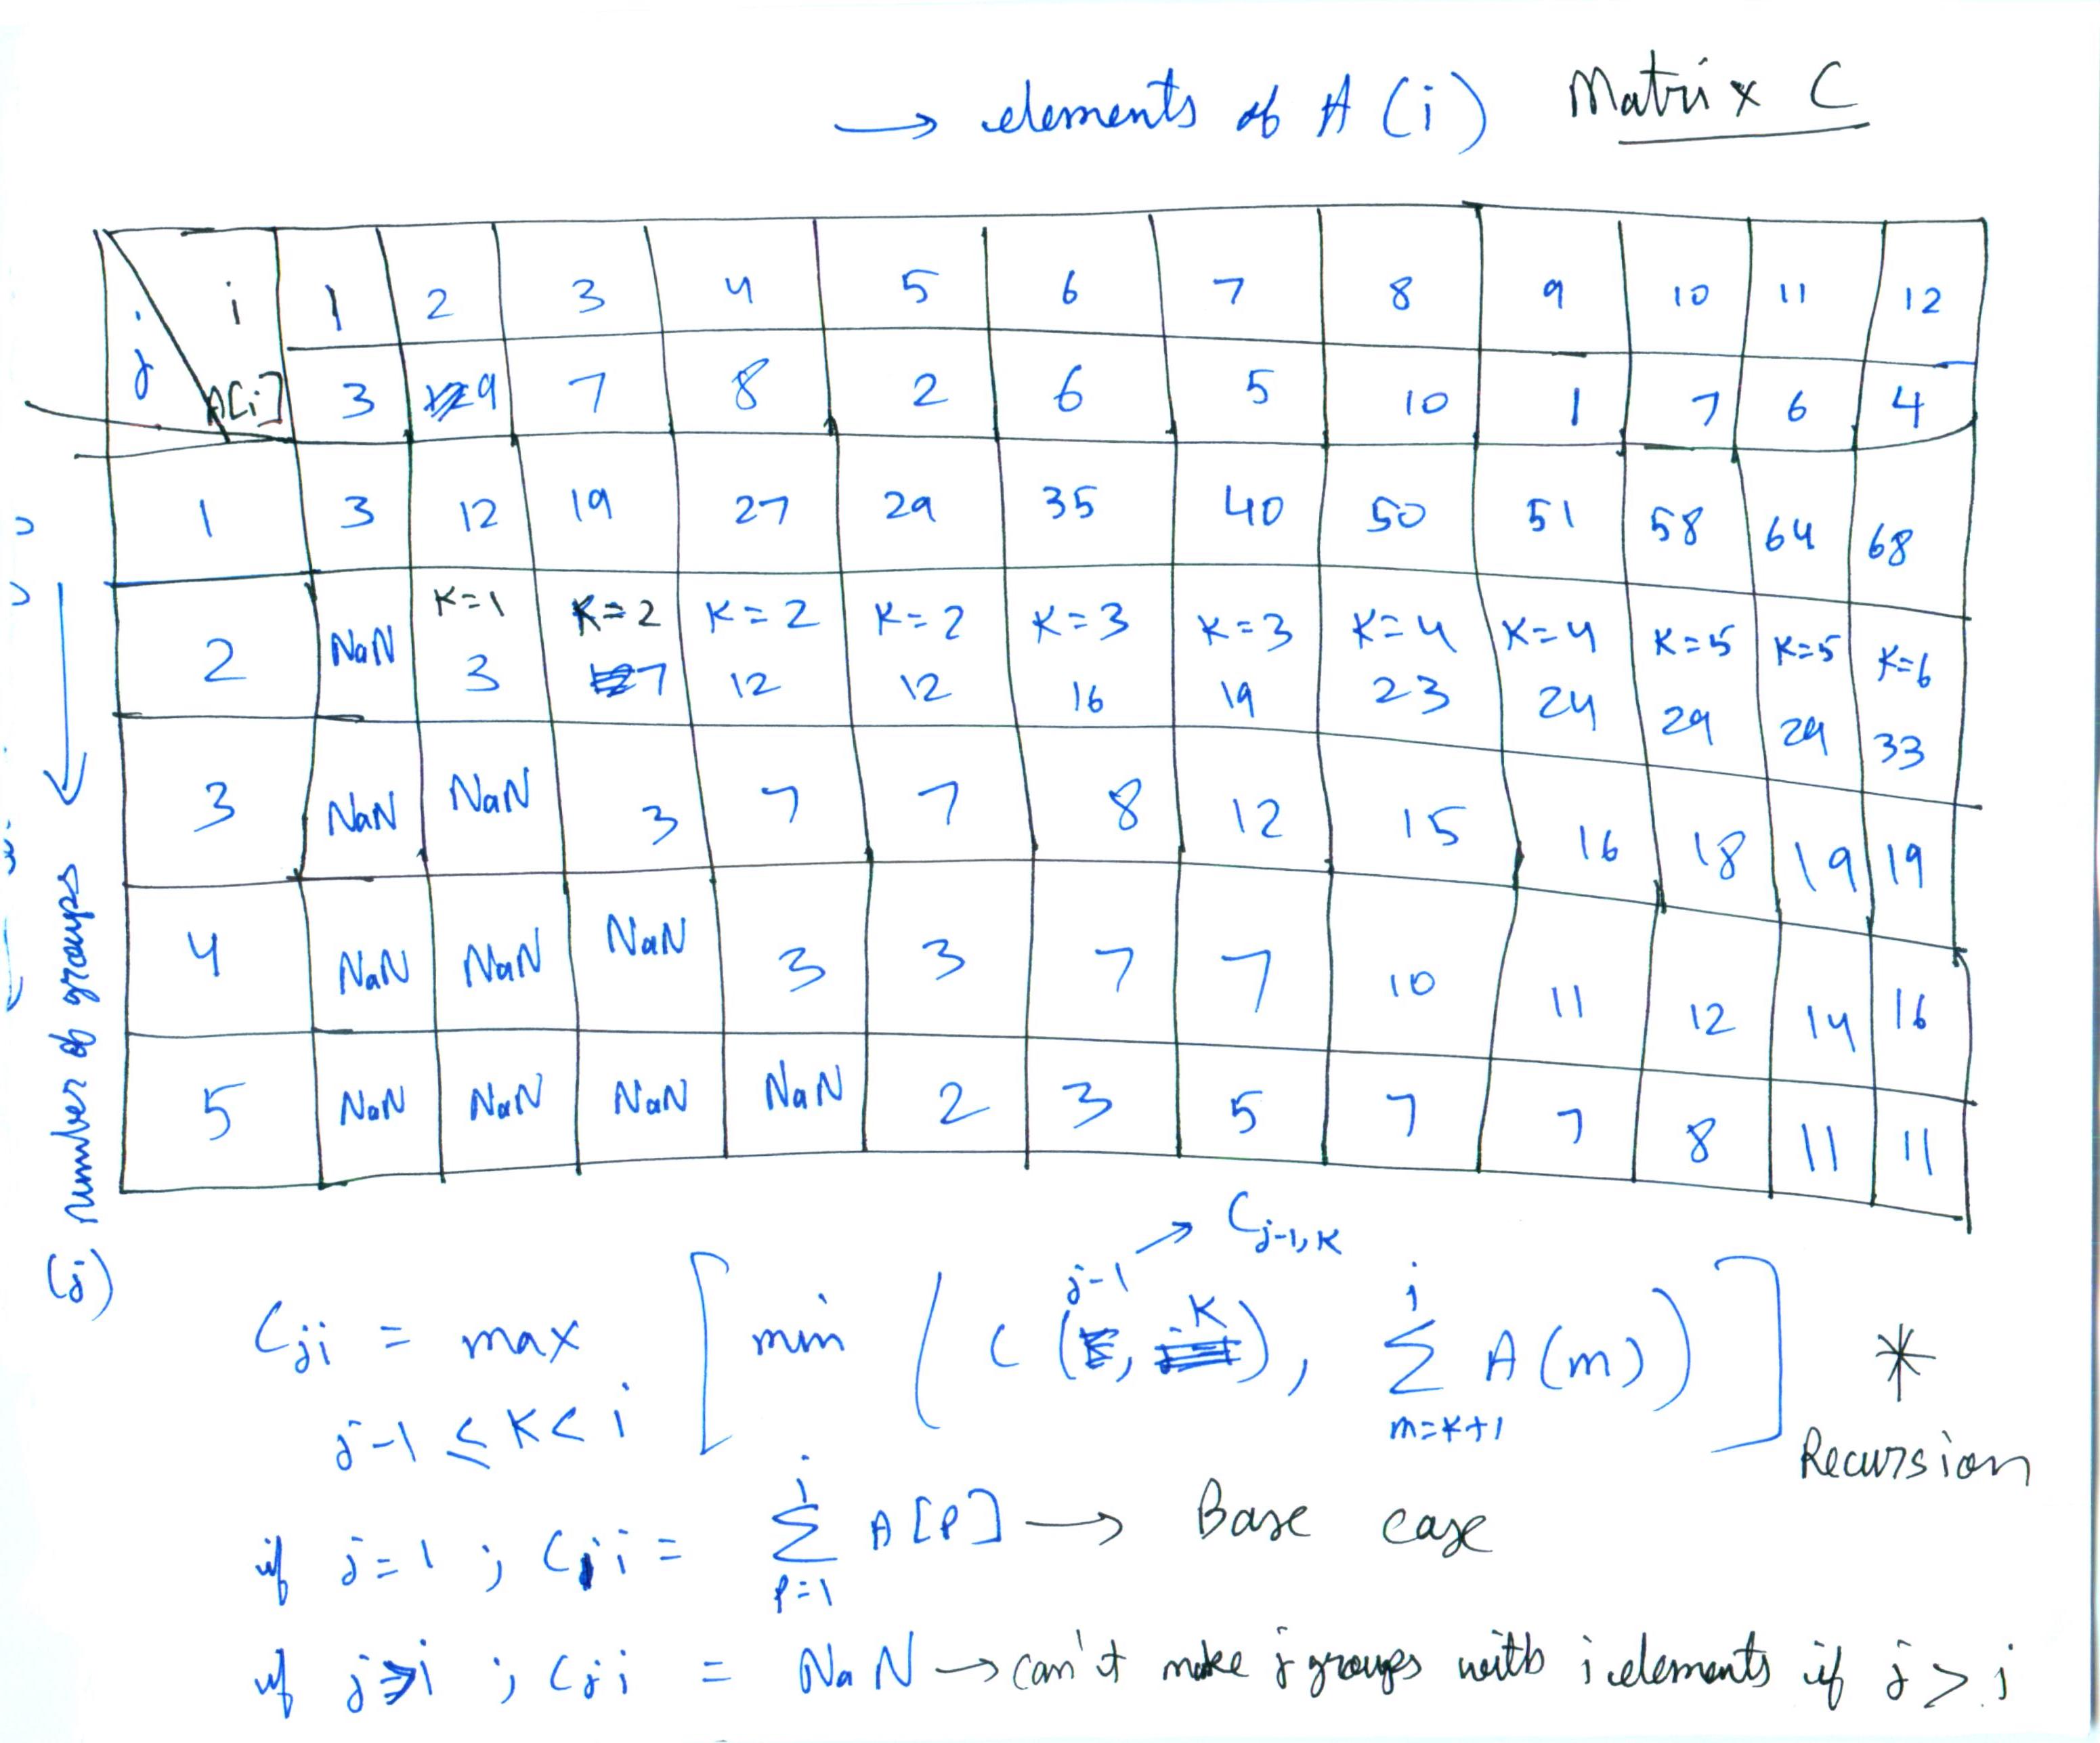 → elements of A (i) Matrix C
i 1 2 3 4 5 6 7 8 9 10 11 12
j A[i] 3 9 7 8 2 6 5 10 1 7 6 4
1 3 12 19 27 29 35 40 50 51 58 64 68
K=1 K=2 K=2 K=2 K=3 K=3 K=4 K=4 K=5 K=5 K=6
2 NaN 3 7 12 12 16 19 23 24 29 29 33
3 NaN NaN 3 7 7 8 12 15 16 18 19 19
4 NaN NaN NaN 3 3 7 7 10 11 12 14 16
5 NaN NaN NaN NaN 2 3 5 7 7 8 11 11
(j) number of groups
j-1 → C_{j-1,K}
C_{ji} = max_{j-1 ≤ K < i} [ min ( C ( , K), \sum_{m=K+1}^{i} A(m) ) ] *
Recursion
if j=1 ; C_{ji} = \sum_{p=1}^{i} A[P] → Base case
if j>i ; C_{ji} = NaN → can't make j groups with i elements if j > i